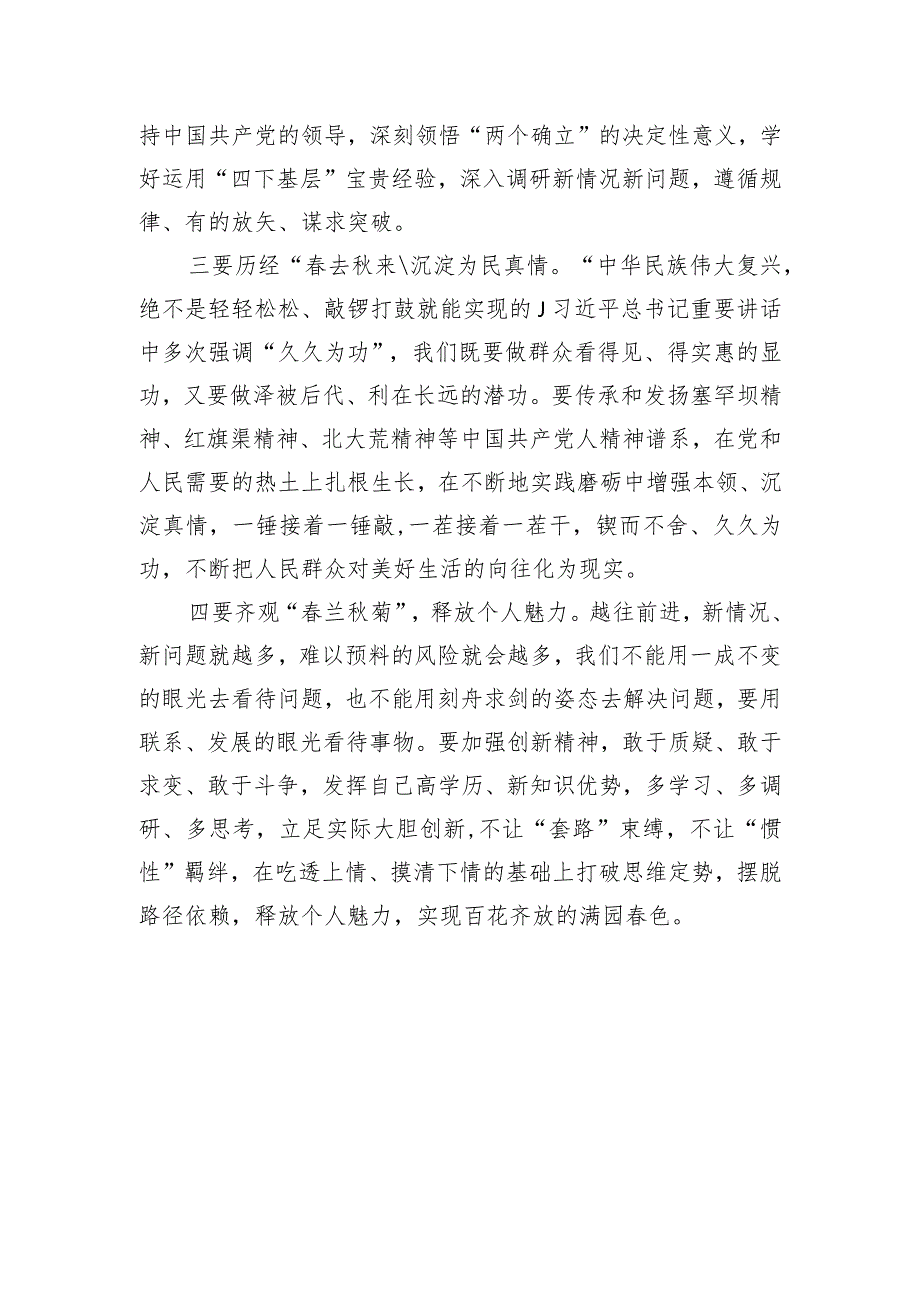 持中国共产党的领导，深刻领悟“两个确立”的决定性意义，学
好运用“四下基层”宝贵经验，深入调研新情况新问题，遵循规
律、有的放矢、谋求突破。
三要历经“春去秋来\沉淀为民真情。“中华民族伟大复兴，
绝不是轻轻松松、敲锣打鼓就能实现的J习近平总书记重要讲话
中多次强调“久久为功”，我们既要做群众看得见、得实惠的显
功，又要做泽被后代、利在长远的潜功。要传承和发扬塞罕坝精
神、红旗渠精神、北大荒精神等中国共产党人精神谱系，在党和
人民需要的热土上扎根生长，在不断地实践磨砺中增强本领、沉
淀真情，一锤接着一锤敲,一茬接着一茬干，锲而不舍、久久为
功，不断把人民群众对美好生活的向往化为现实。
四要齐观“春兰秋菊”，释放个人魅力。越往前进，新情况、
新问题就越多，难以预料的风险就会越多，我们不能用一成不变
的眼光去看待问题，也不能用刻舟求剑的姿态去解决问题，要用
联系、发展的眼光看待事物。要加强创新精神，敢于质疑、敢于
求变、敢于斗争，发挥自己高学历、新知识优势，多学习、多调
研、多思考，立足实际大胆创新,不让“套路”束缚，不让“惯
性”羁绊，在吃透上情、摸清下情的基础上打破思维定势，摆脱
路径依赖，释放个人魅力，实现百花齐放的满园春色。